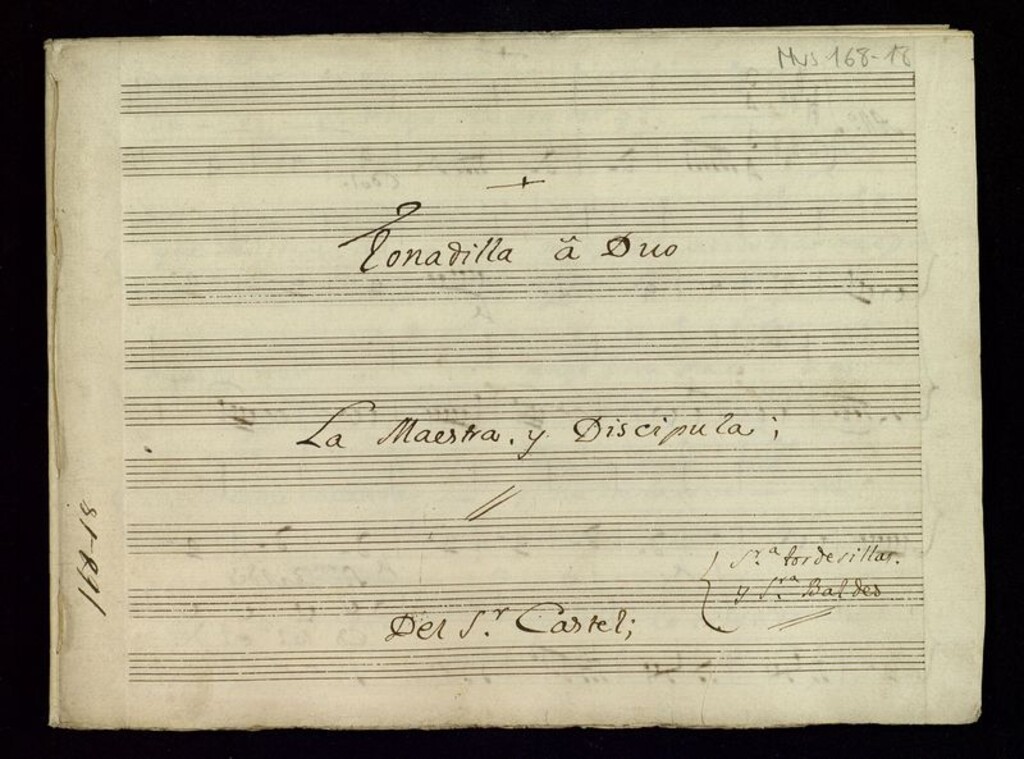 Mus 168-18
Tonadilla â Duo
La Maestra. y Discipula;
Sr.ª tordesillas.
y Sr.ª Baldes
Del Sr. Castel;
168-18